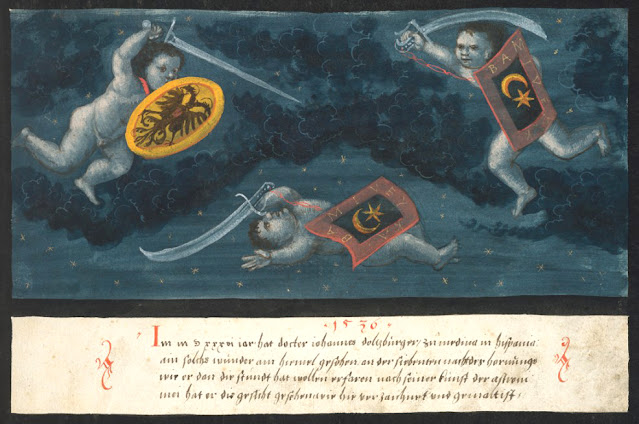 Im m v xxxvi iar hat docter iohannes zu medina in hispania
ain solchs wunder am hiemel gesehen an der siebenten nacht des hornungs
wie er dan die stundt hat wellen erfaren nach seiner kunst der astrom
mei hat er die gesicht gesehen wie hie ver zaichnet und gemalt ist